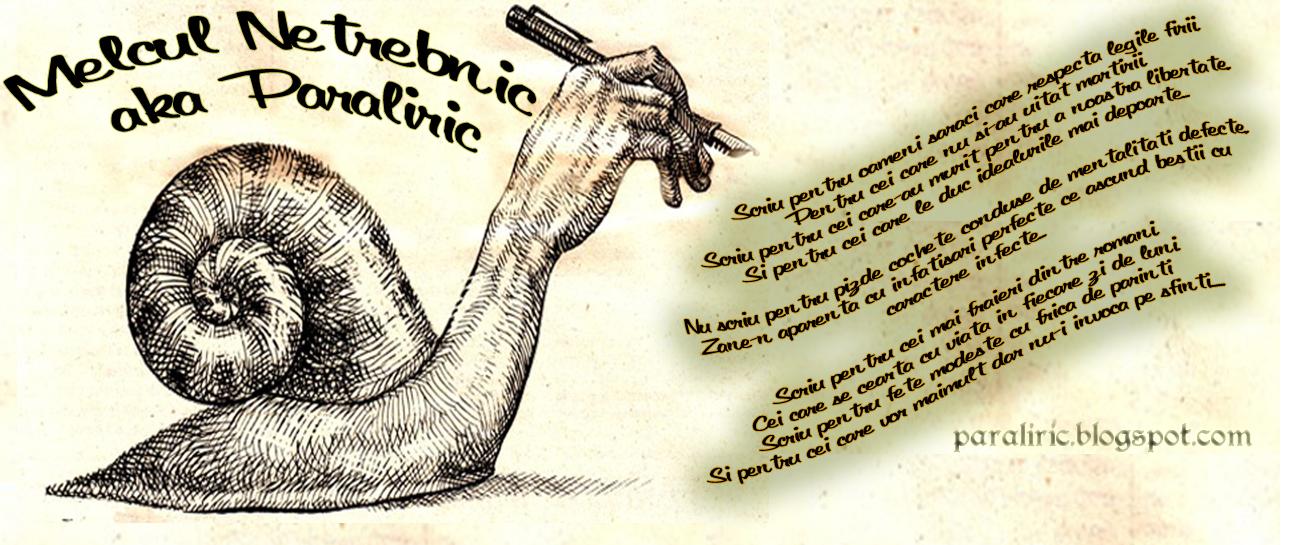 Melcul Netrebnic
aka Paraliric
Scriu pentru oameni saraci care respecta legile firii
Pentru cei care nu si-au uitat martirii
Scriu pentru cei care-au murit pentru a noastra libertate
Si pentru cei care le duc idealurile mai departe...
Nu scriu pentru pizde cochete conduse de mentalitati defecte
Zane-n aparenta cu infatisari perfecte ce ascund bestii cu
caractere infecte...
Scriu pentru cei mai fraieri dintre romani
Cei care se cearta cu viata in fiecare zi de luni
Scriu pentru fete modeste cu frica de parinti
Si pentru cei care vor maimult dar nu-i invoca pe sfinti...
paraliric.blogspot.com